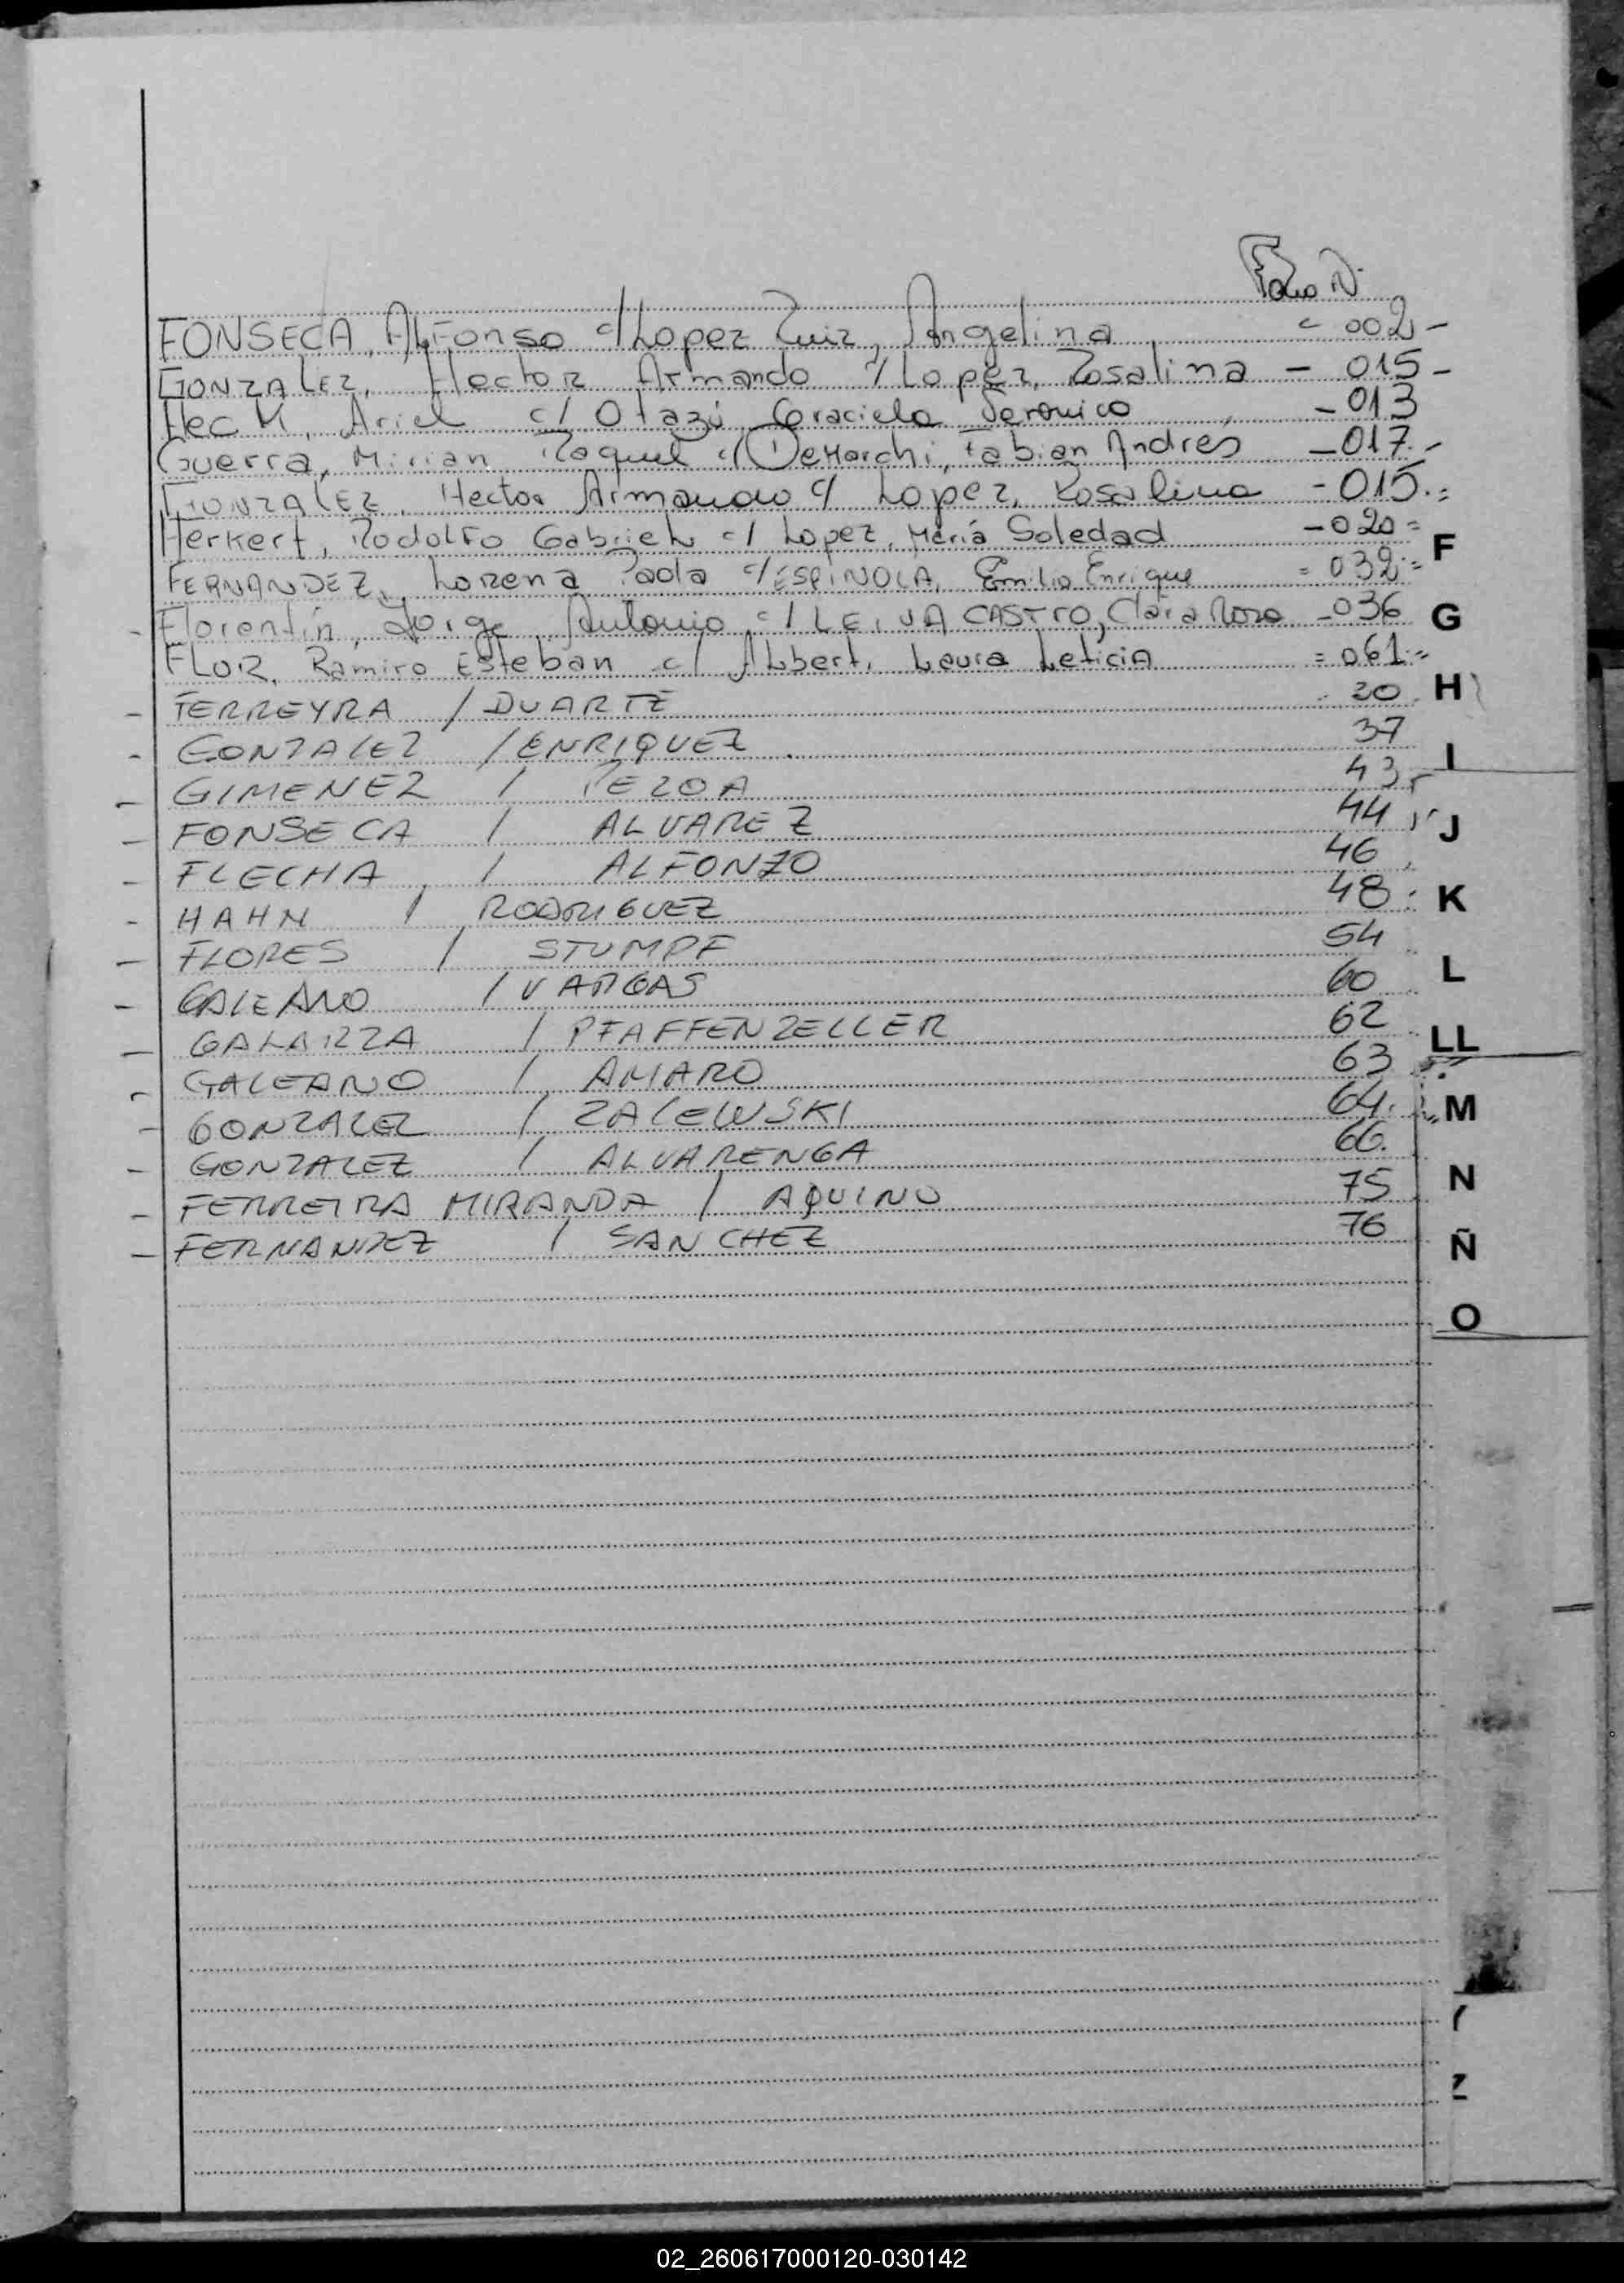 Folio N°
FONSECA, Alfonso c/ Lopez Ruiz, Angelina = 002 -
GONZALEZ, Hector Armando c/ Lopez, Rosalina - 015 -
Ariel c/ Otazú, Graciela Veronica - 013
Guerra, Mirian Raquel c/ DeMarchi, Fabian Andrés - 017 -
GONZALEZ, Hector Armando c/ Lopez, Rosalina - 015.=
Herkert, Rodolfo Gabriel c/ Lopez, María Soledad - 020 =
FERNANDEZ, Lorena Paola c/ ESPINOLA, Emilio Enrique = 032 =
Florentín, Jorge Antonio c/ LEIVA CASTRO, Clara Rosa - 036
FLOR, Ramiro Esteban c/ Albert, Laura Leticia = 061 =
- FERREYRA / DUARTE 20
- GONZALEZ / ENRIQUEZ 37
- GIMENEZ / PEZOA 43
- FONSECA / ALVAREZ 44
- FLECHA / ALFONZO 46
- HAHN / RODRIGUEZ 48
- FLORES / STUMPF 54
- GALEANO / VARGAS 60
- GALARZZA / PFAFFENZELLER 62
- GALEANO / AMARO 63
- GONZALEZ / ZALEWSKI 64
- GONZALEZ / ALVARENGA 66
- FERREIRA MIRANDA / AQUINO 75
- FERNANDEZ / SANCHEZ 76
F
G
H
I
J
K
L
LL
M
N
Ñ
O
Z
02_260617000120-030142